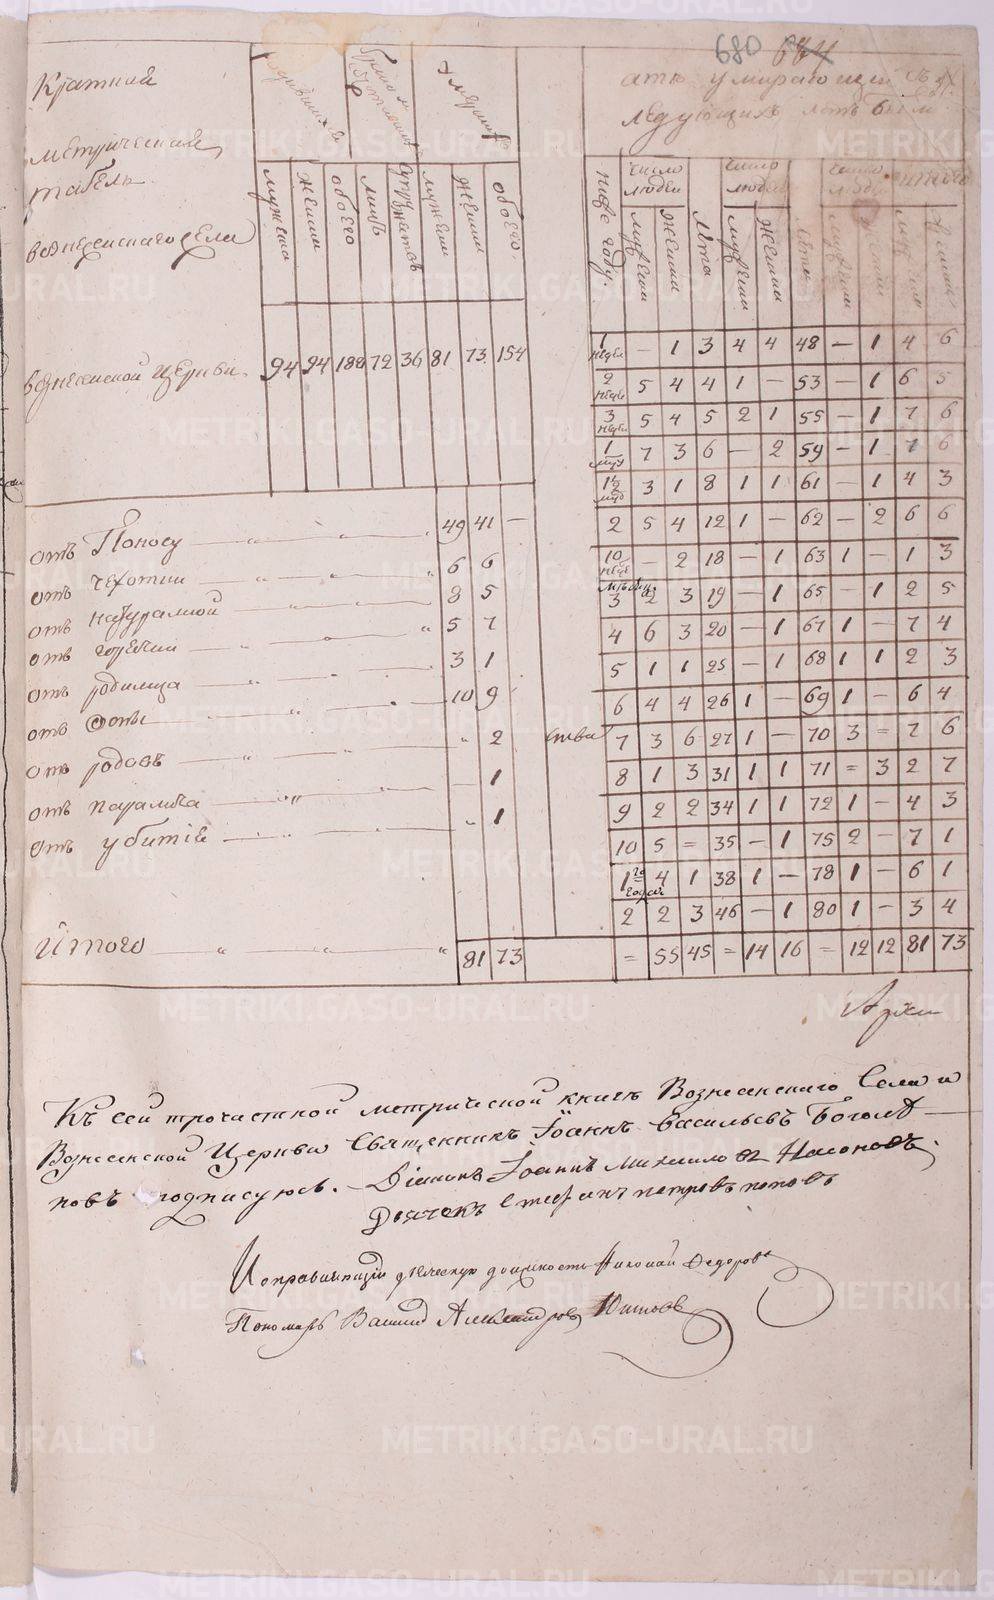 680 684
Краткий
метрическая
табель
вознесенскаго села
вознесенской церкви.
родившихся
умерших
мужеска
женски
обоего
лицъ
супружатовъ
мужески
женски
обоего.
94 94 188 72 36 81 73 154
отъ Поносу 49 41 —
отъ чехотки 6 6
отъ натуралной 8 5
отъ горячки 5 7
отъ родимца 3 1
отъ 10 9
отъ родовъ 2
отъ паралича 1
отъ убитiя 1
Итого 81 73
умирающей съ
ледующихъ летъ были
ниже году.
число людей
мужески
женски
лѣта
число людей
мужески
женски
лѣта
число людей
итого
1 недѣли — 1 3 4 4 48 — 1 4 6
2 недѣли 5 4 4 1 — 53 — 1 6 5
3 недѣли 5 4 5 2 1 55 — 1 7 6
1 7 3 6 — 2 59 — 1 7 6
1½ 3 1 8 1 1 61 — 1 4 3
2 5 4 12 1 — 62 — 2 6 6
10 — 2 18 — 1 63 1 — 1 3
3 2 3 19 — 1 65 — 1 2 5
4 6 3 20 — 1 67 1 — 7 4
5 1 1 25 — 1 68 1 1 2 3
6 4 4 26 1 — 69 1 — 6 4
7 3 6 27 1 — 70 3 = 7 6
8 1 3 31 1 1 71 = 3 2 7
9 2 2 34 1 1 72 1 — 4 3
10 5 = 35 — 1 75 2 — 7 1
1 го годах 4 1 38 1 — 78 1 — 6 1
2 2 3 46 — 1 80 1 — 3 4
= 55 45 = 14 16 = 12 12 81 73
Къ сей трочастной метрической книгѣ Вознесенскаго Села и
Вознесенской Церкви Священникъ Iоаннъ Васильевъ Боголѣ—
повъ подписуюсь. Дiаконъ Iоаннъ Михаиловъ Насоновъ.
Дьячекъ Стефанъ петровъ поповъ
Исправляющiй дьяческую должность Николай Федоровъ
Пономарь Василiй Александровъ
METRIKI.GASO-URAL.RU